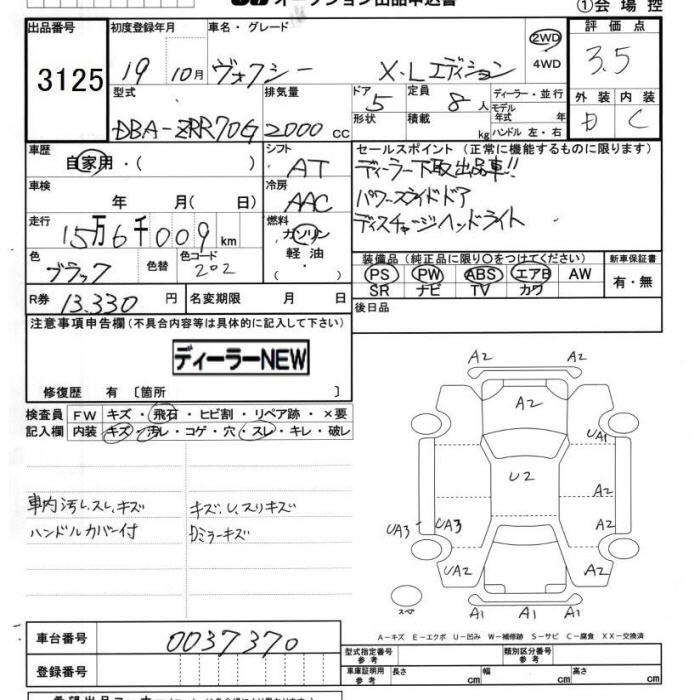 オークション出品申込書
①会場控
出品番号
3125
初度登録年月
19 10月
車名・グレード
ヴォクシー X・Lエディション
2WD
4WD
評価点
3.5
型式
DBA-ZRR70G
排気量
2000 cc
ドア
5
形状
定員
8 人
積載
kg
ディーラー・並行
モデル年式 年
ハンドル 左・右
外装 内装
D C
車歴
自家用・( )
シフト
AT
セールスポイント(正常に機能するものに限ります)
ディーラー下取出品車!!
パワースライドドア
ディスチャージヘッドライト
車検
年 月( 日)
冷房
AAC
走行
15万6千009km
燃料
ガソリン
軽油・
( )
色
ブラック
色替
色コード
202
装備品(純正品に限り○をつけてください)
新車保証書
PS PW ABS エアB AW
SR ナビ TV カワ
有・無
R券 13.330 円
名変期限 月 日
後日品
注意事項申告欄(不具合内容等は具体的に記入して下さい)
ディーラーNEW
修復歴 有 〔箇所 〕
検査員記入欄
FW キズ・飛石・ヒビ割・リペア跡・×要
内装 キズ・汚レ・コゲ・穴・スレ・キレ・破レ
車内汚レ、スレ、キズ
キズ、U、スリキズ
ハンドルカバー付
Dミラーキズ
A2
A2
A2
UA1
U2
A2
UA3 UA3
A2
UA2
A2
スペア
A1 A1 A1
A-キズ E-エクボ U-凹み W-補修跡 S-サビ C-腐食 XX-交換済
車台番号
0037370
登録番号
型式指定番号
参考
類別区分番号
参考
車庫証明用
参考
長さ cm
幅 cm
高さ cm